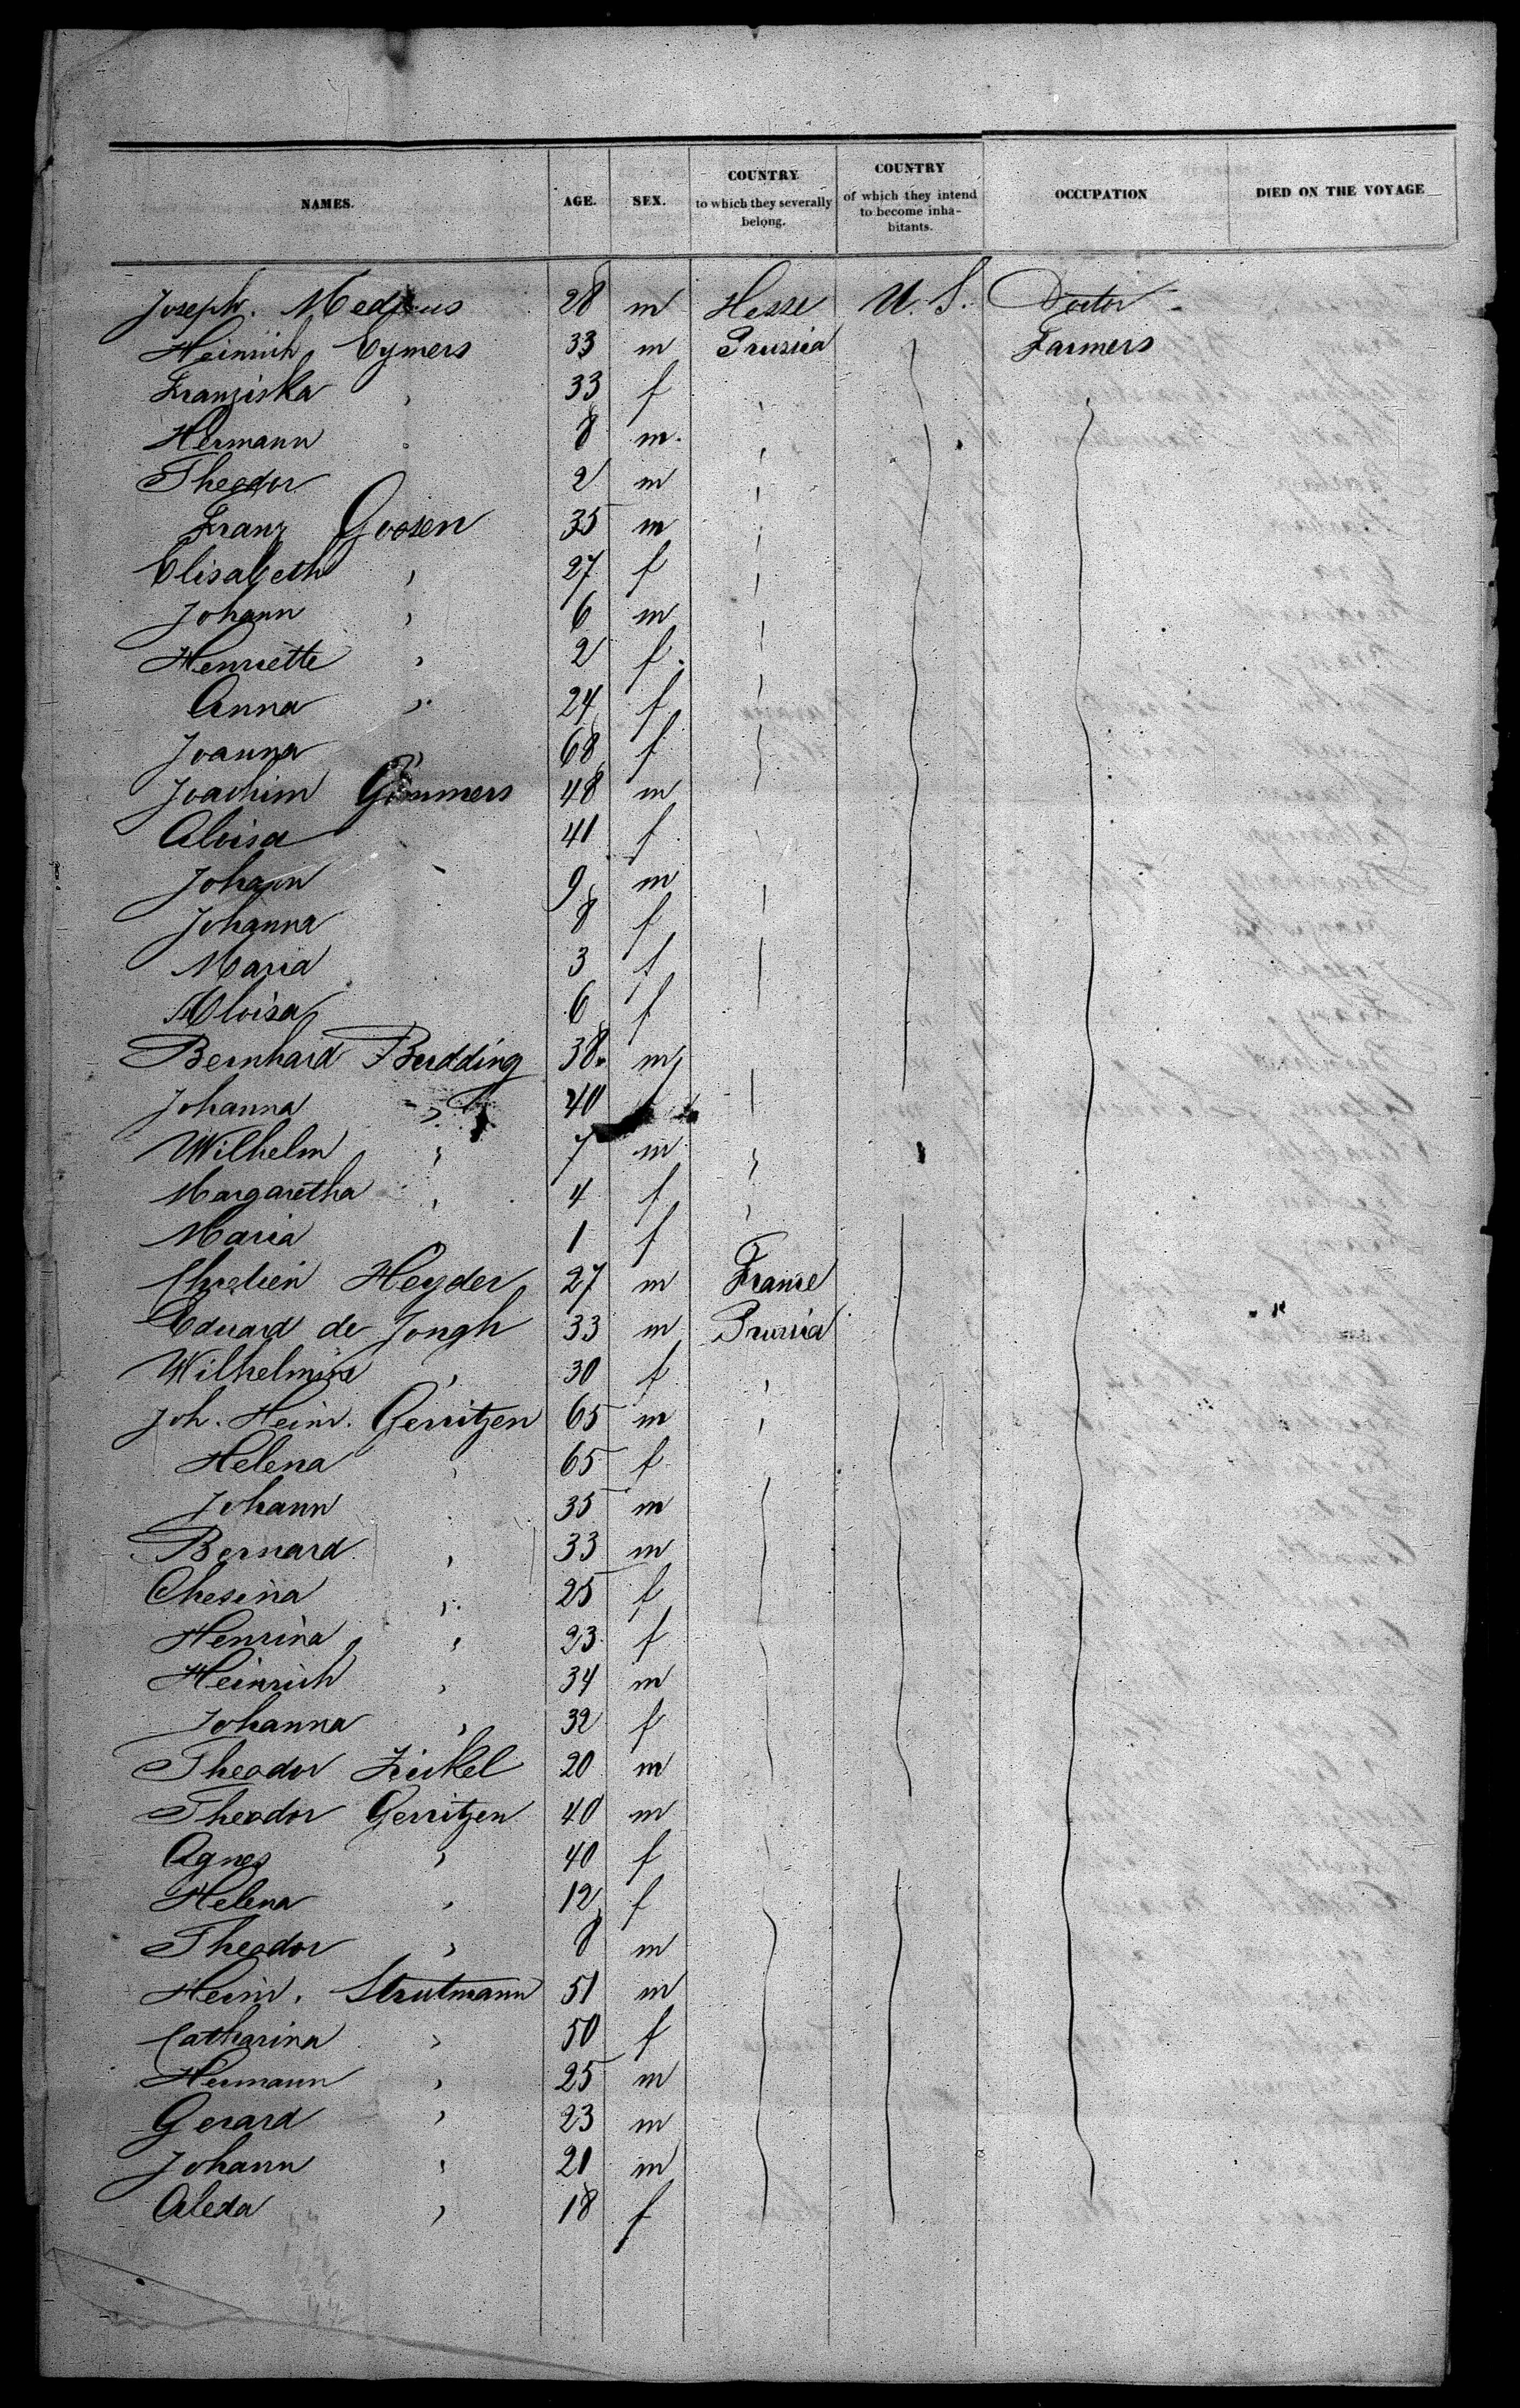 NAMES. AGE. SEX. COUNTRY to which they severally belong. COUNTRY of which they intend to become inhabitants. OCCUPATION DIED ON THE VOYAGE
Joseph. 28 m Hesse U. S. Doctor
Heinrich Eymers 33 m Prussia Farmers
Franziska " 33 f
Hermann " 8 m
Theodor 2 m
Franz Goosen 35 m
Elisabeth " 27 f
Johann " 6 m
Henriette " 2 f
Anna " 24 f
Joanna " 68 f
Joachim 48 m
Aloisa " 41 f
Johann " 9 m
Johanna 8 f
Maria 3 f
Aloisa 6 f
Bernhard Budding 38 m
Johanna " 40
Wilhelm " 7 m
Margaretha " 4 f
Maria 1 f
Chretien Heyder 27 m France
Eduard de Jongh 33 m Prussia
Wilhelmine " 30 f "
Joh. Heinr. Gerritzen 65 m "
Helena " 65 f
Johann " 35 m
Bernard " 33 m
Chesina " 25 f
Henrina " 23 f
Heinrich " 34 m
Johanna " 32 f
Theodor 20 m
Theodor Gerritzen 40 m
Agnes " 40 f
Helena " 12 f
Theodor " 8 m
Heinr. Strutmann 51 m
Catharina " 50 f
Hermann " 25 m
Gerard " 23 m
Johann " 21 m
Aleda " 18 f